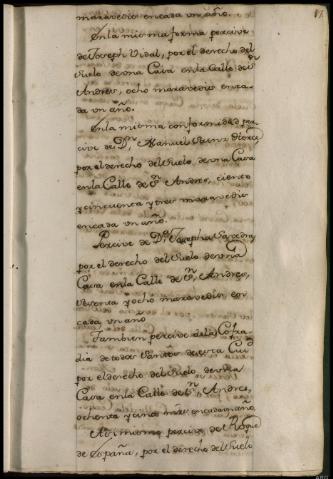 maravedis en cada un año.
En la misma forma percive
de Joseph Vidal, por el derecho del
suelo de una Casa en la Calle de Sn
Andres, ocho maravedis en ca-
da un año.
En la misma conformidad per-
cive de Dn Manuel
por el derecho del suelo, de una Casa
en la Calle de Sn Andres, ciento
y cinquenta y tres maravedis
en cada un año.
Percive de Da Josepha
por el derecho del suelo de una
Casa en la Calle de Sn Andres,
y ocho maravedis en
cada un año
Tambien percive de la Cofra-
dia de todos Santos de esta Ciud
por el derecho del suelo, de una
Casa en la Calle de Sn Andres,
ochenta y cinco mrs en cada un año,
Asi mismo percive de Roque
de España, por el derecho del suelo